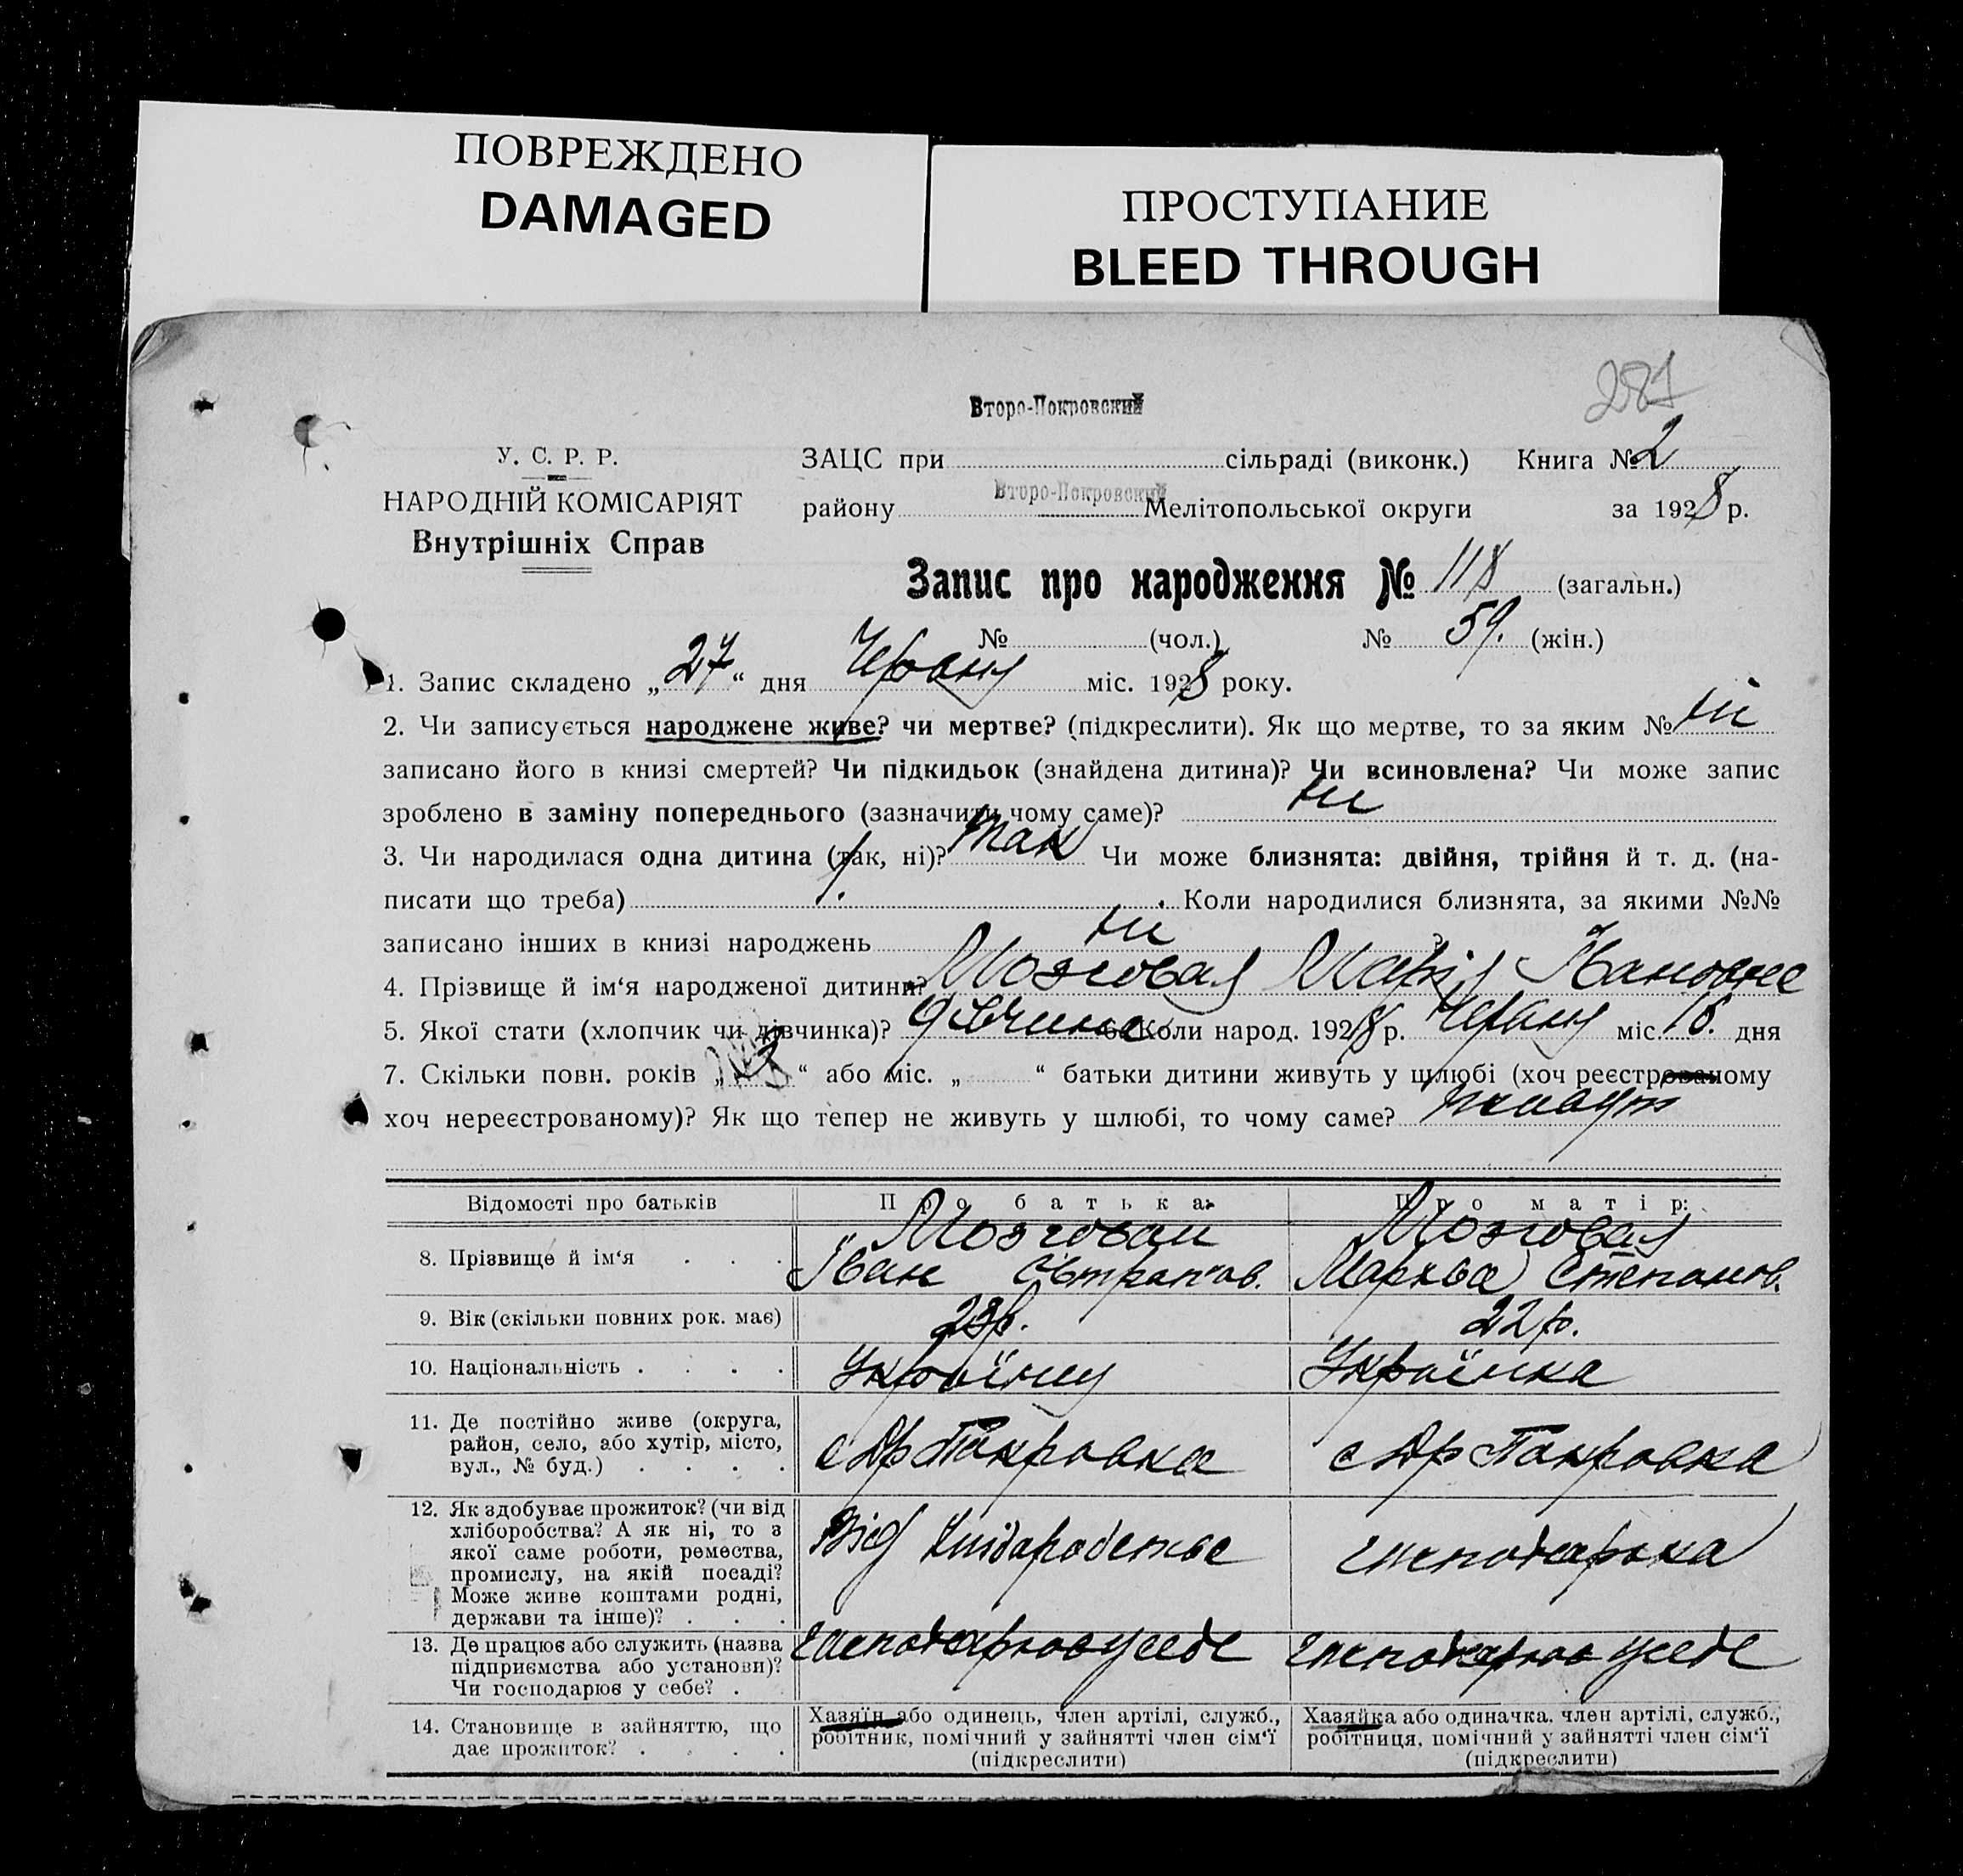 ПОВРЕЖДЕНО
DAMAGED
ПРОСТУПАНИЕ
BLEED THROUGH
281
Второ-Покровский
У. С. Р. Р.
НАРОДНІЙ КОМІСАРІЯТ
Внутрішніх Справ
ЗАЦС при сільраді (виконк.) Книга № 2
району Второ-Покровский Мелітопольської округи за 1928 р.
Запис про народження № 118 (загальн.)
№ (чол.) № 59. (жін.)
1. Запис складено „27“ дня Червня міс. 1928 року.
2. Чи записується народжене живе? чи мертве? (підкреслити). Як що мертве, то за яким № ні
записано його в книзі смертей? Чи підкидьок (знайдена дитина)? Чи всиновлена? Чи може запис
зроблено в заміну попереднього (зазначити чому саме)? ні
3. Чи народилася одна дитина (так, ні)? так Чи може близнята: двійня, трійня й т. д. (на-
писати що треба) 1. Коли народилися близнята, за якими №№
записано інших в книзі народжень ні
4. Прізвище й ім‘я народженої дитини? Мозговая Марія Івановна
5. Якої стати (хлопчик чи дівчинка)? дівчина 6. Коли народ. 1928 р. Червня міс. дня
7. Скільки повн. років „ “ або міс. „ “ батьки дитини живуть у шлюбі (хоч реєстрованому
хоч нереєстрованому)? Як що тепер не живуть у шлюбі, то чому саме? живут
Відомості про батьків Про батька: Про матір:
8. Прізвище й ім‘я Мозговой Іван Мозговая Мархва Степанов.
9. Вік (скільки повних рок. має) 23р. 22р.
10. Національність Українец Українка
11. Де постійно живе (округа,
район, село, або хутір, місто,
вул., № буд.) с Др Покровка с Др Покровка
12. Як здобуває прожиток? (чи від
хліборобства? А як ні, то з
якої саме роботи, ремества,
промислу, на якій посаді?
Може живе коштами родні,
держави та інше)? Від хліборобства господарька
13. Де працює або служить (назва
підприємства або установи)?
Чи господарює у себе? господарює у себе господарює у себе
14. Становище в зайняттю, що
дає прожиток?
Хазяїн або одинець, член артілі, служб.,
робітник, помічний у зайнятті член сім‘ї
(підкреслити)
Хазяйка або одиначка. член артілі, служб.,
робітниця, помічний у зайнятті член сім‘ї
(підкреслити)